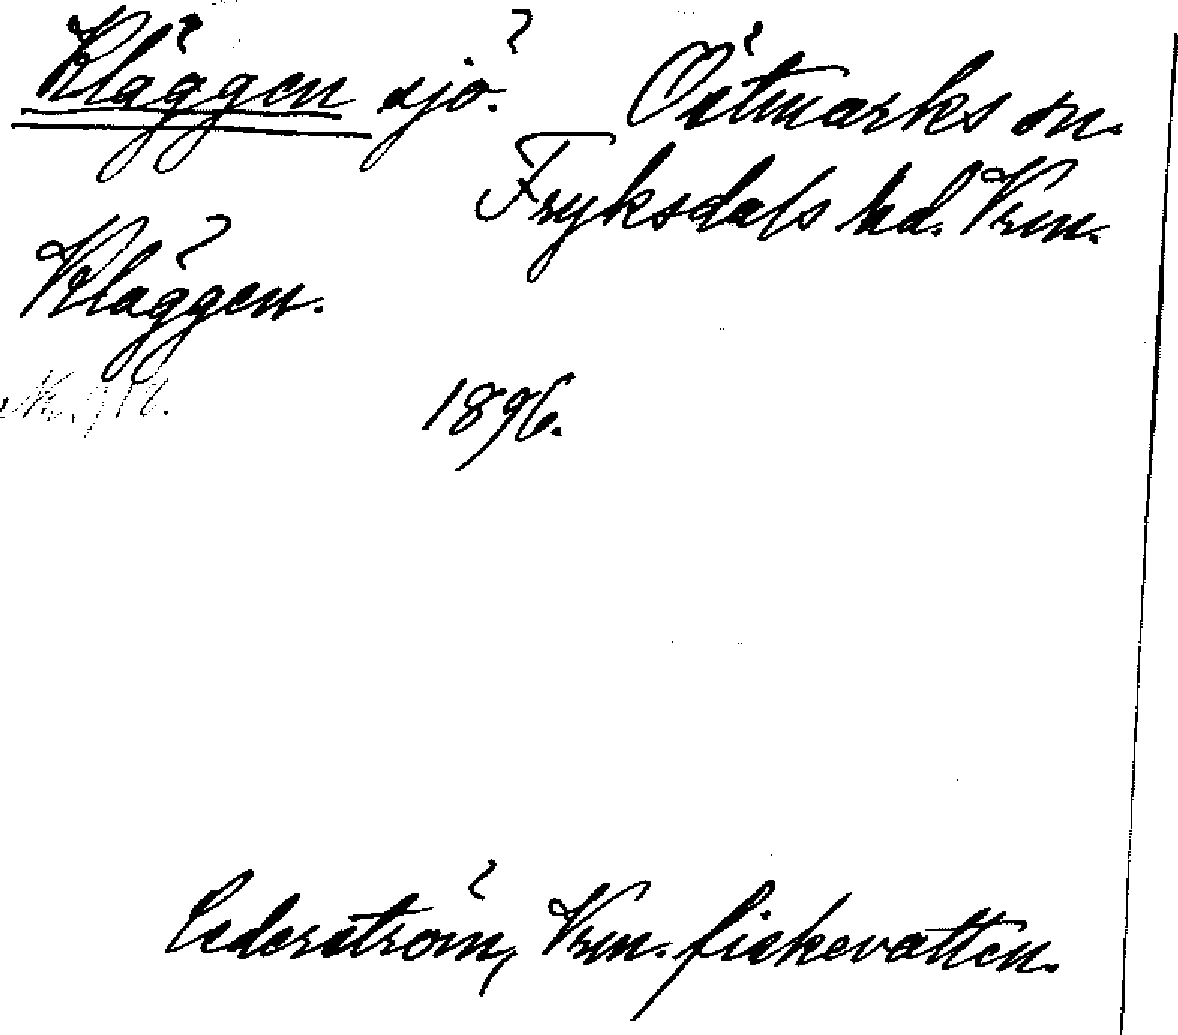 Kläggen sjö. Östmarks sn.
Fryksdals hd. Vrm.
Kläggen.
1896.
Cederström, Vrm. fiskevatten.